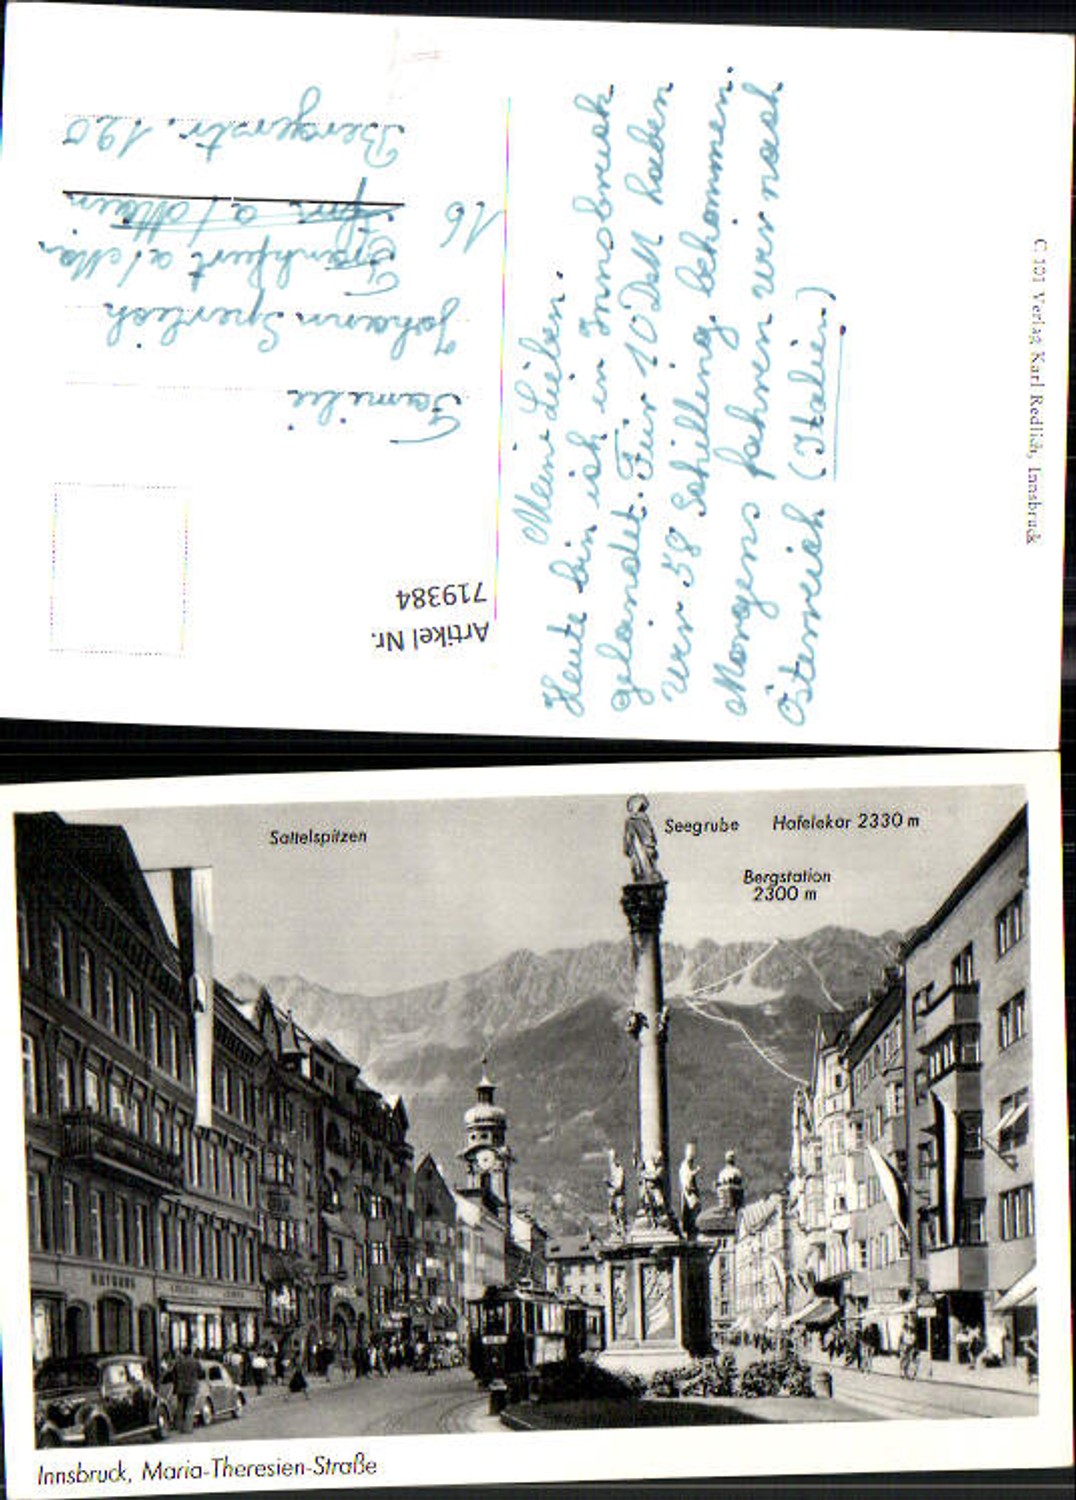 Meine Lieben.
Heute bin ich in Innsbruck
gelandet. Für 10 DM haben
wir 58 Schilling bekommen.
Morgens fahren wir nach
Österreich (Italien)
Familie
Johann Sperlich
16 Frankfurt a/Main
a/Main
Bergerstr. 120
Artikel Nr.
719384
C 101 Verlag Karl Redlich, Innsbruck
Sattelspitzen
Seegrube Hafelekar 2330 m
Bergstation
2300 m
Innsbruck, Maria-Theresien-Straße